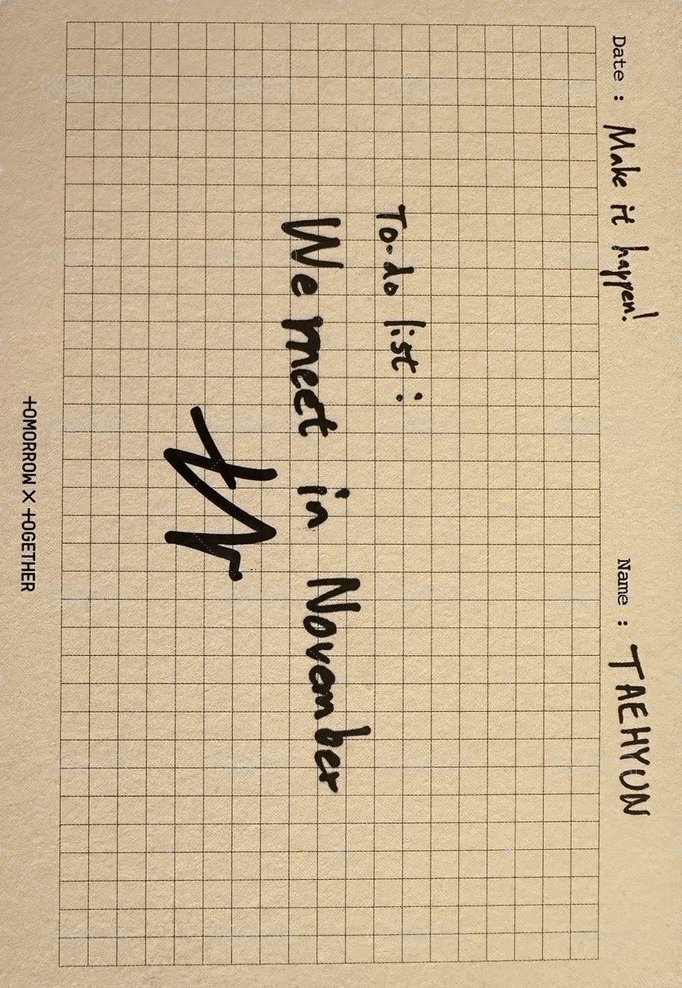 Date : Make it happen!
Name : TAEHYUN
To-do list :
We meet in November
TOMORROW X TOGETHER